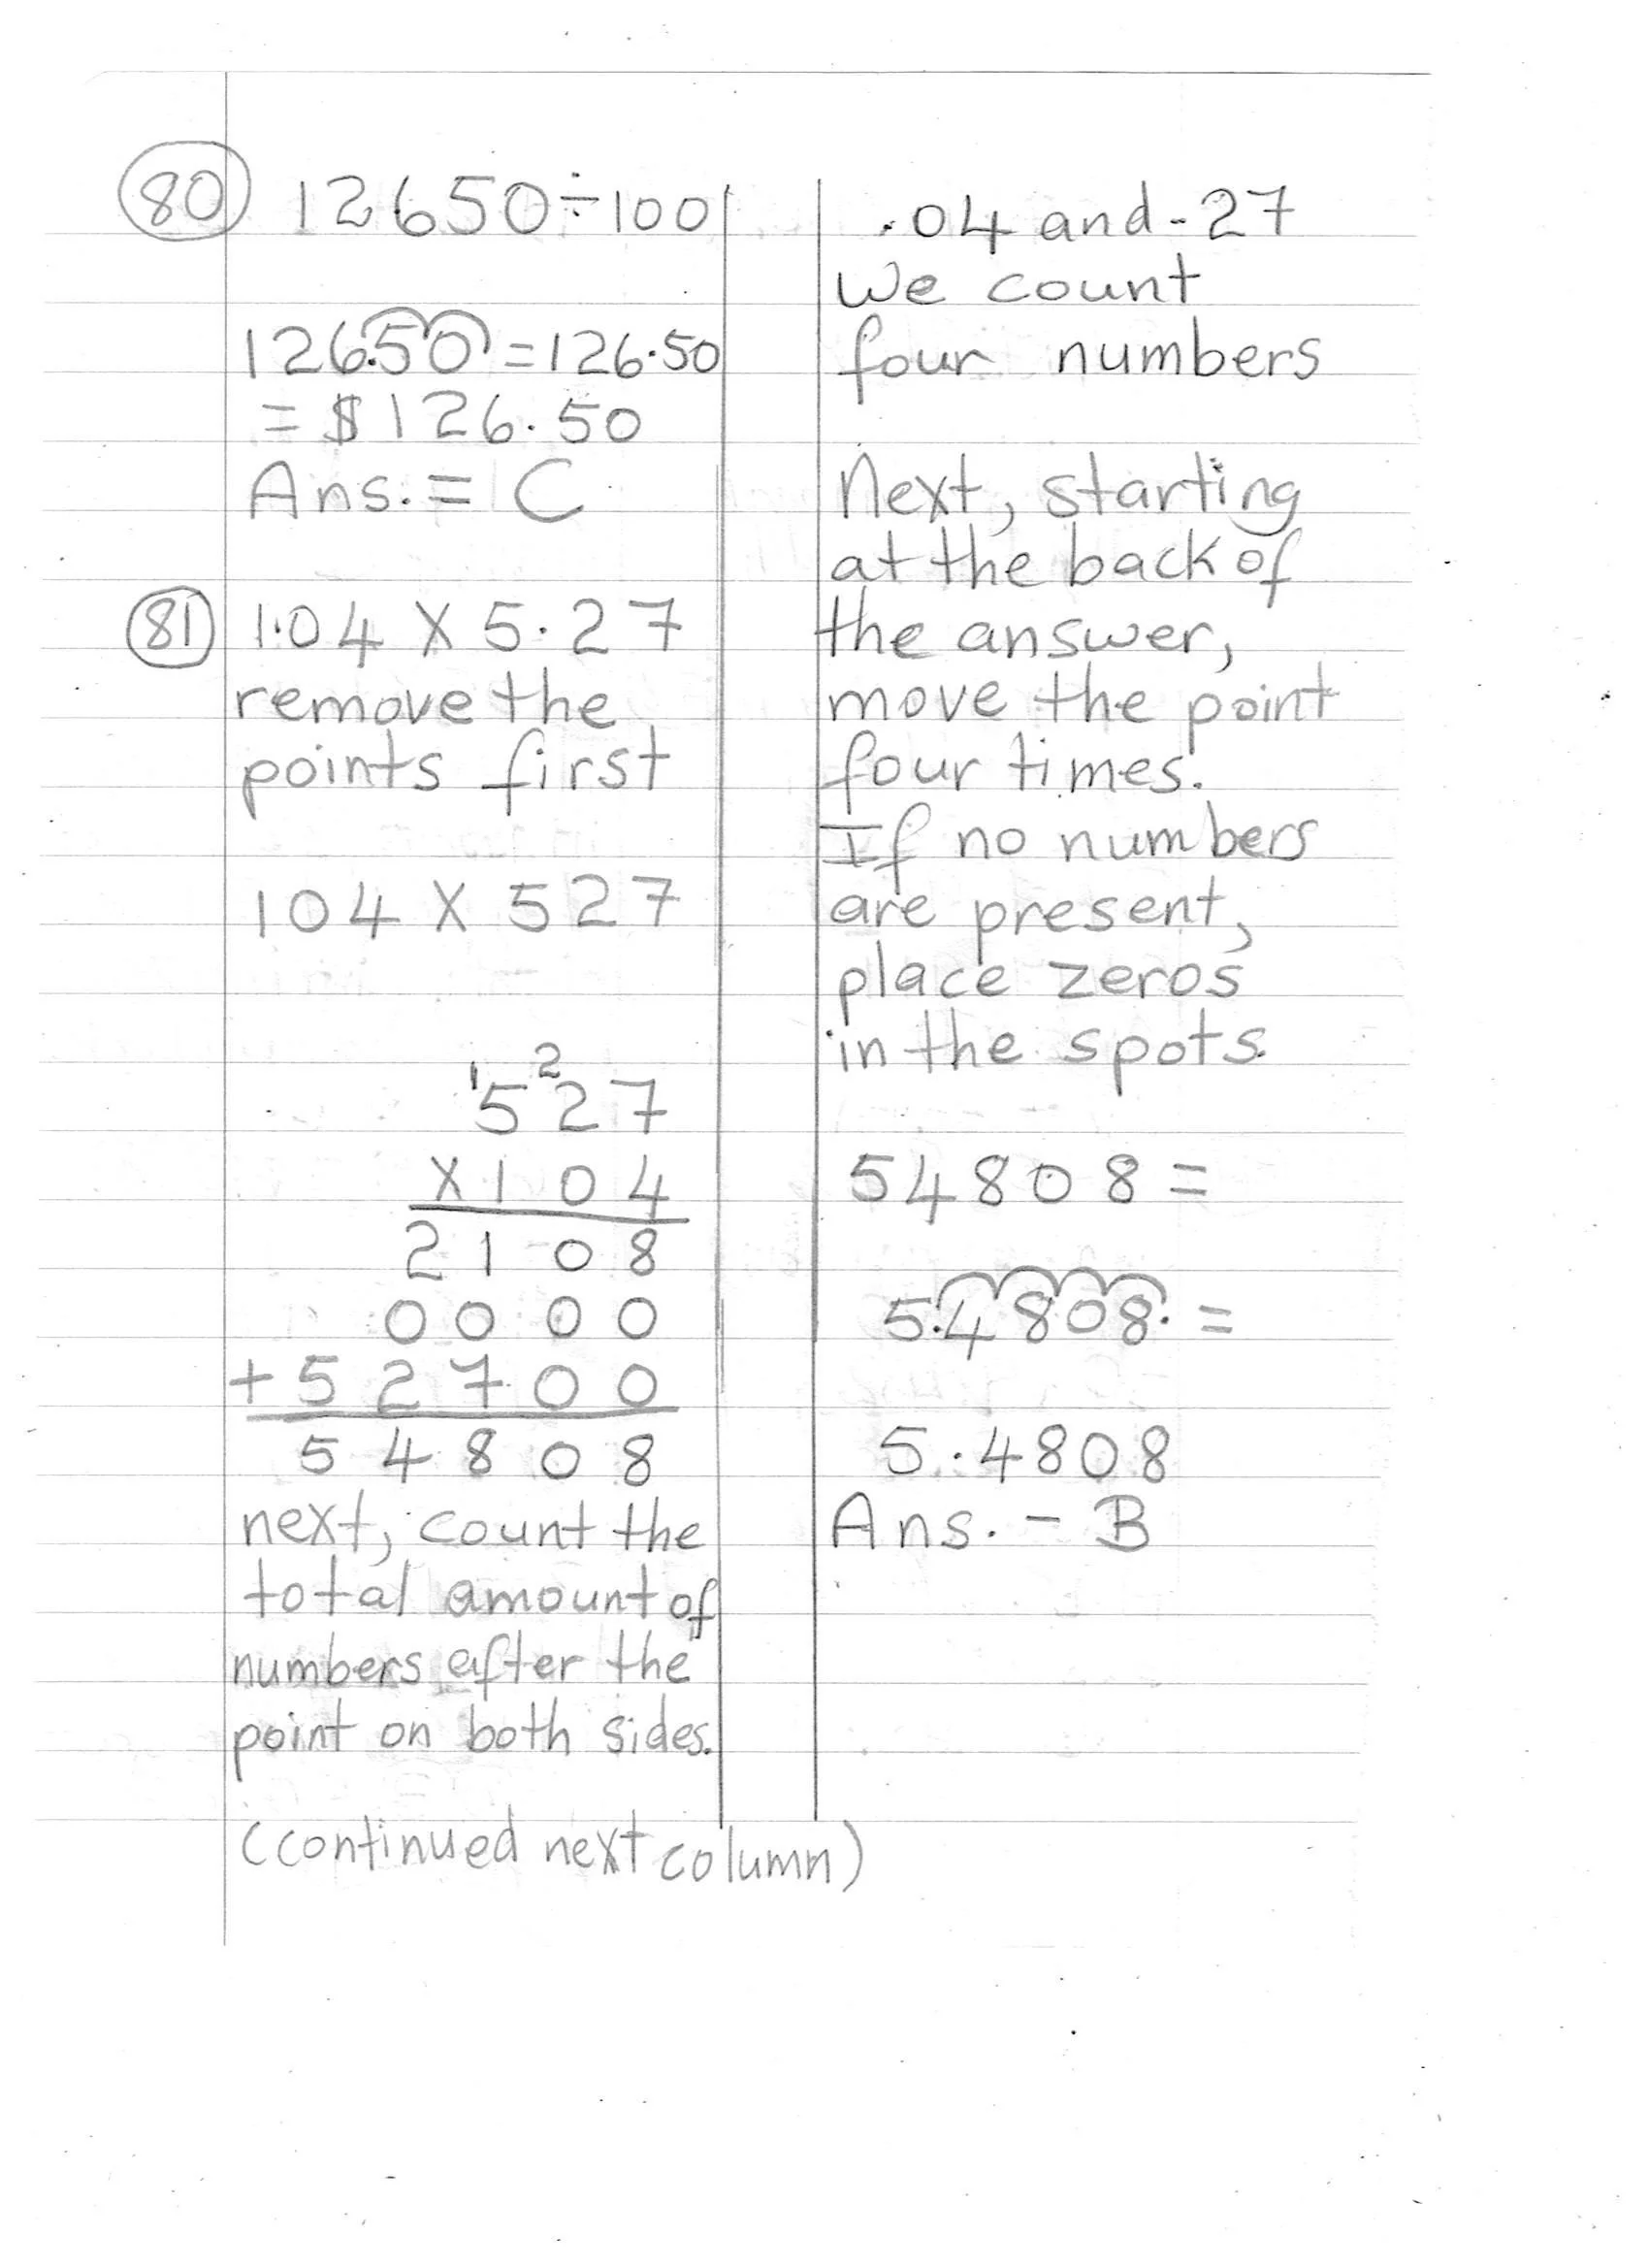 80 12650÷100
12650=126.50
=$126.50
Ans.= C
81 1.04 X 5.27
remove the
points first
104 X 527
1 2
527
X104
2108
0000
+52700
54808
next, count the
total amount of
numbers after the
point on both sides.
(continued next column)
.04 and .27
We count
four numbers
Next, starting
at the back of
the answer,
move the point
four times.
If no numbers
are present,
place zeros
in the spots.
54808=
5.4808.=
5.4808
Ans. - B